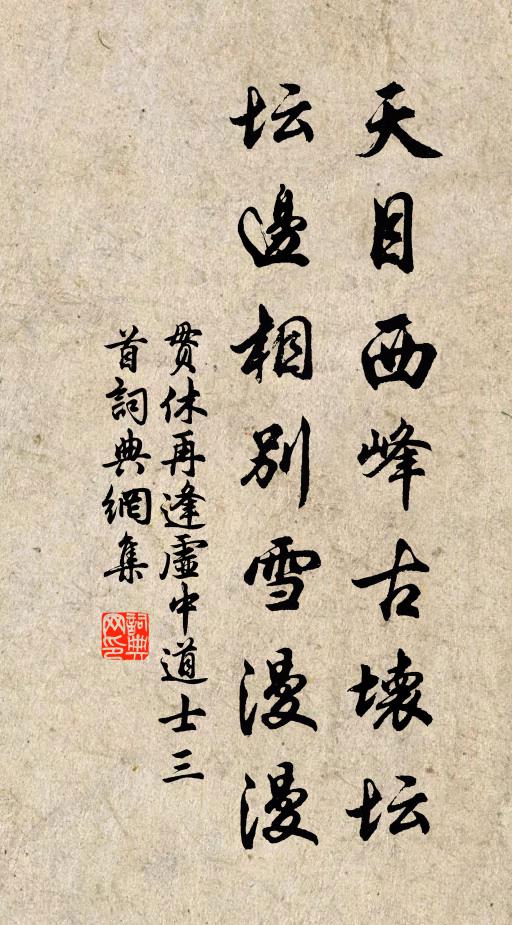 天目西峰古壊坛
坛邊相別雪漫漫
贯休再逢虛中道士三
首詞典網集
詞典
网印